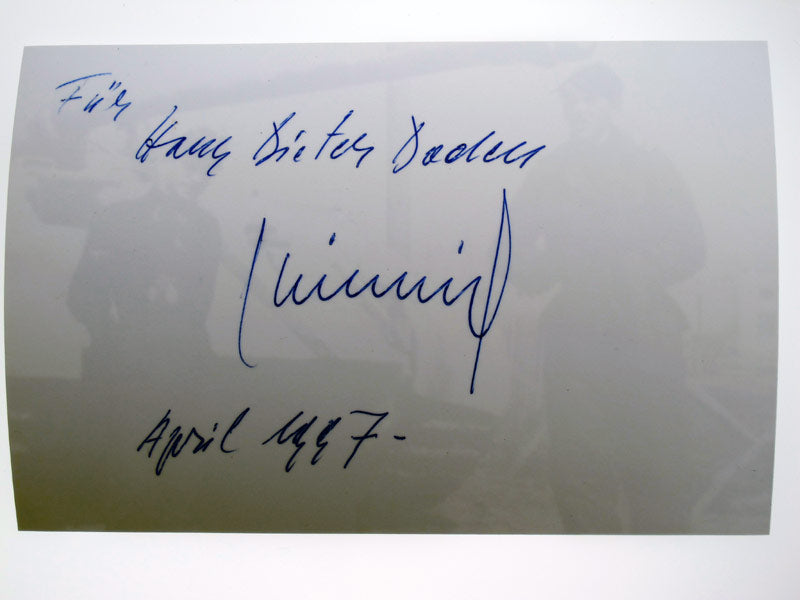 Für
Hans Dieter Baden
April 1997-